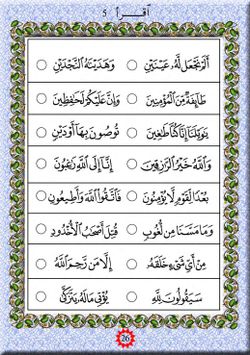 اقرأ 5
أَلَمْ نَجْعَل لَّهُۥ عَيْنَيْنِ ○ وَهَدَيْنَٰهُ ٱلنَّجْدَيْنِ ○
طَآئِفَةٌ مِّنَ ٱلْمُؤْمِنِينَ ○ وَإِنَّ عَلَيْكُمْ لَحَٰفِظِينَ ○
يَٰوَيْلَنَآ إِنَّا كُنَّا طَٰغِينَ ○ تُوصُونَ بِهَآ أَوْ دَيْنٍ ○
وَٱللَّهُ خَيْرُ ٱلرَّٰزِقِينَ ○ إِنَّآ إِلَى ٱللَّهِ رَٰغِبُونَ ○
بُعْدًا لِّقَوْمٍ لَّا يُؤْمِنُونَ ○ فَٱتَّقُوا۟ ٱللَّهَ وَأَطِيعُونِ ○
وَمَا مَسَّنَا مِن لُّغُوبٍ ○ قُتِلَ أَصْحَٰبُ ٱلْأُخْدُودِ ○
مِنْ أَىِّ شَىْءٍ خَلَقَهُۥ ○ إِلَّا مَن رَّحِمَ ٱللَّهُ ○
سَيَقُولُونَ لِلَّهِ ○ يُؤْتِى مَالَهُۥ يَتَزَكَّىٰ ○
26